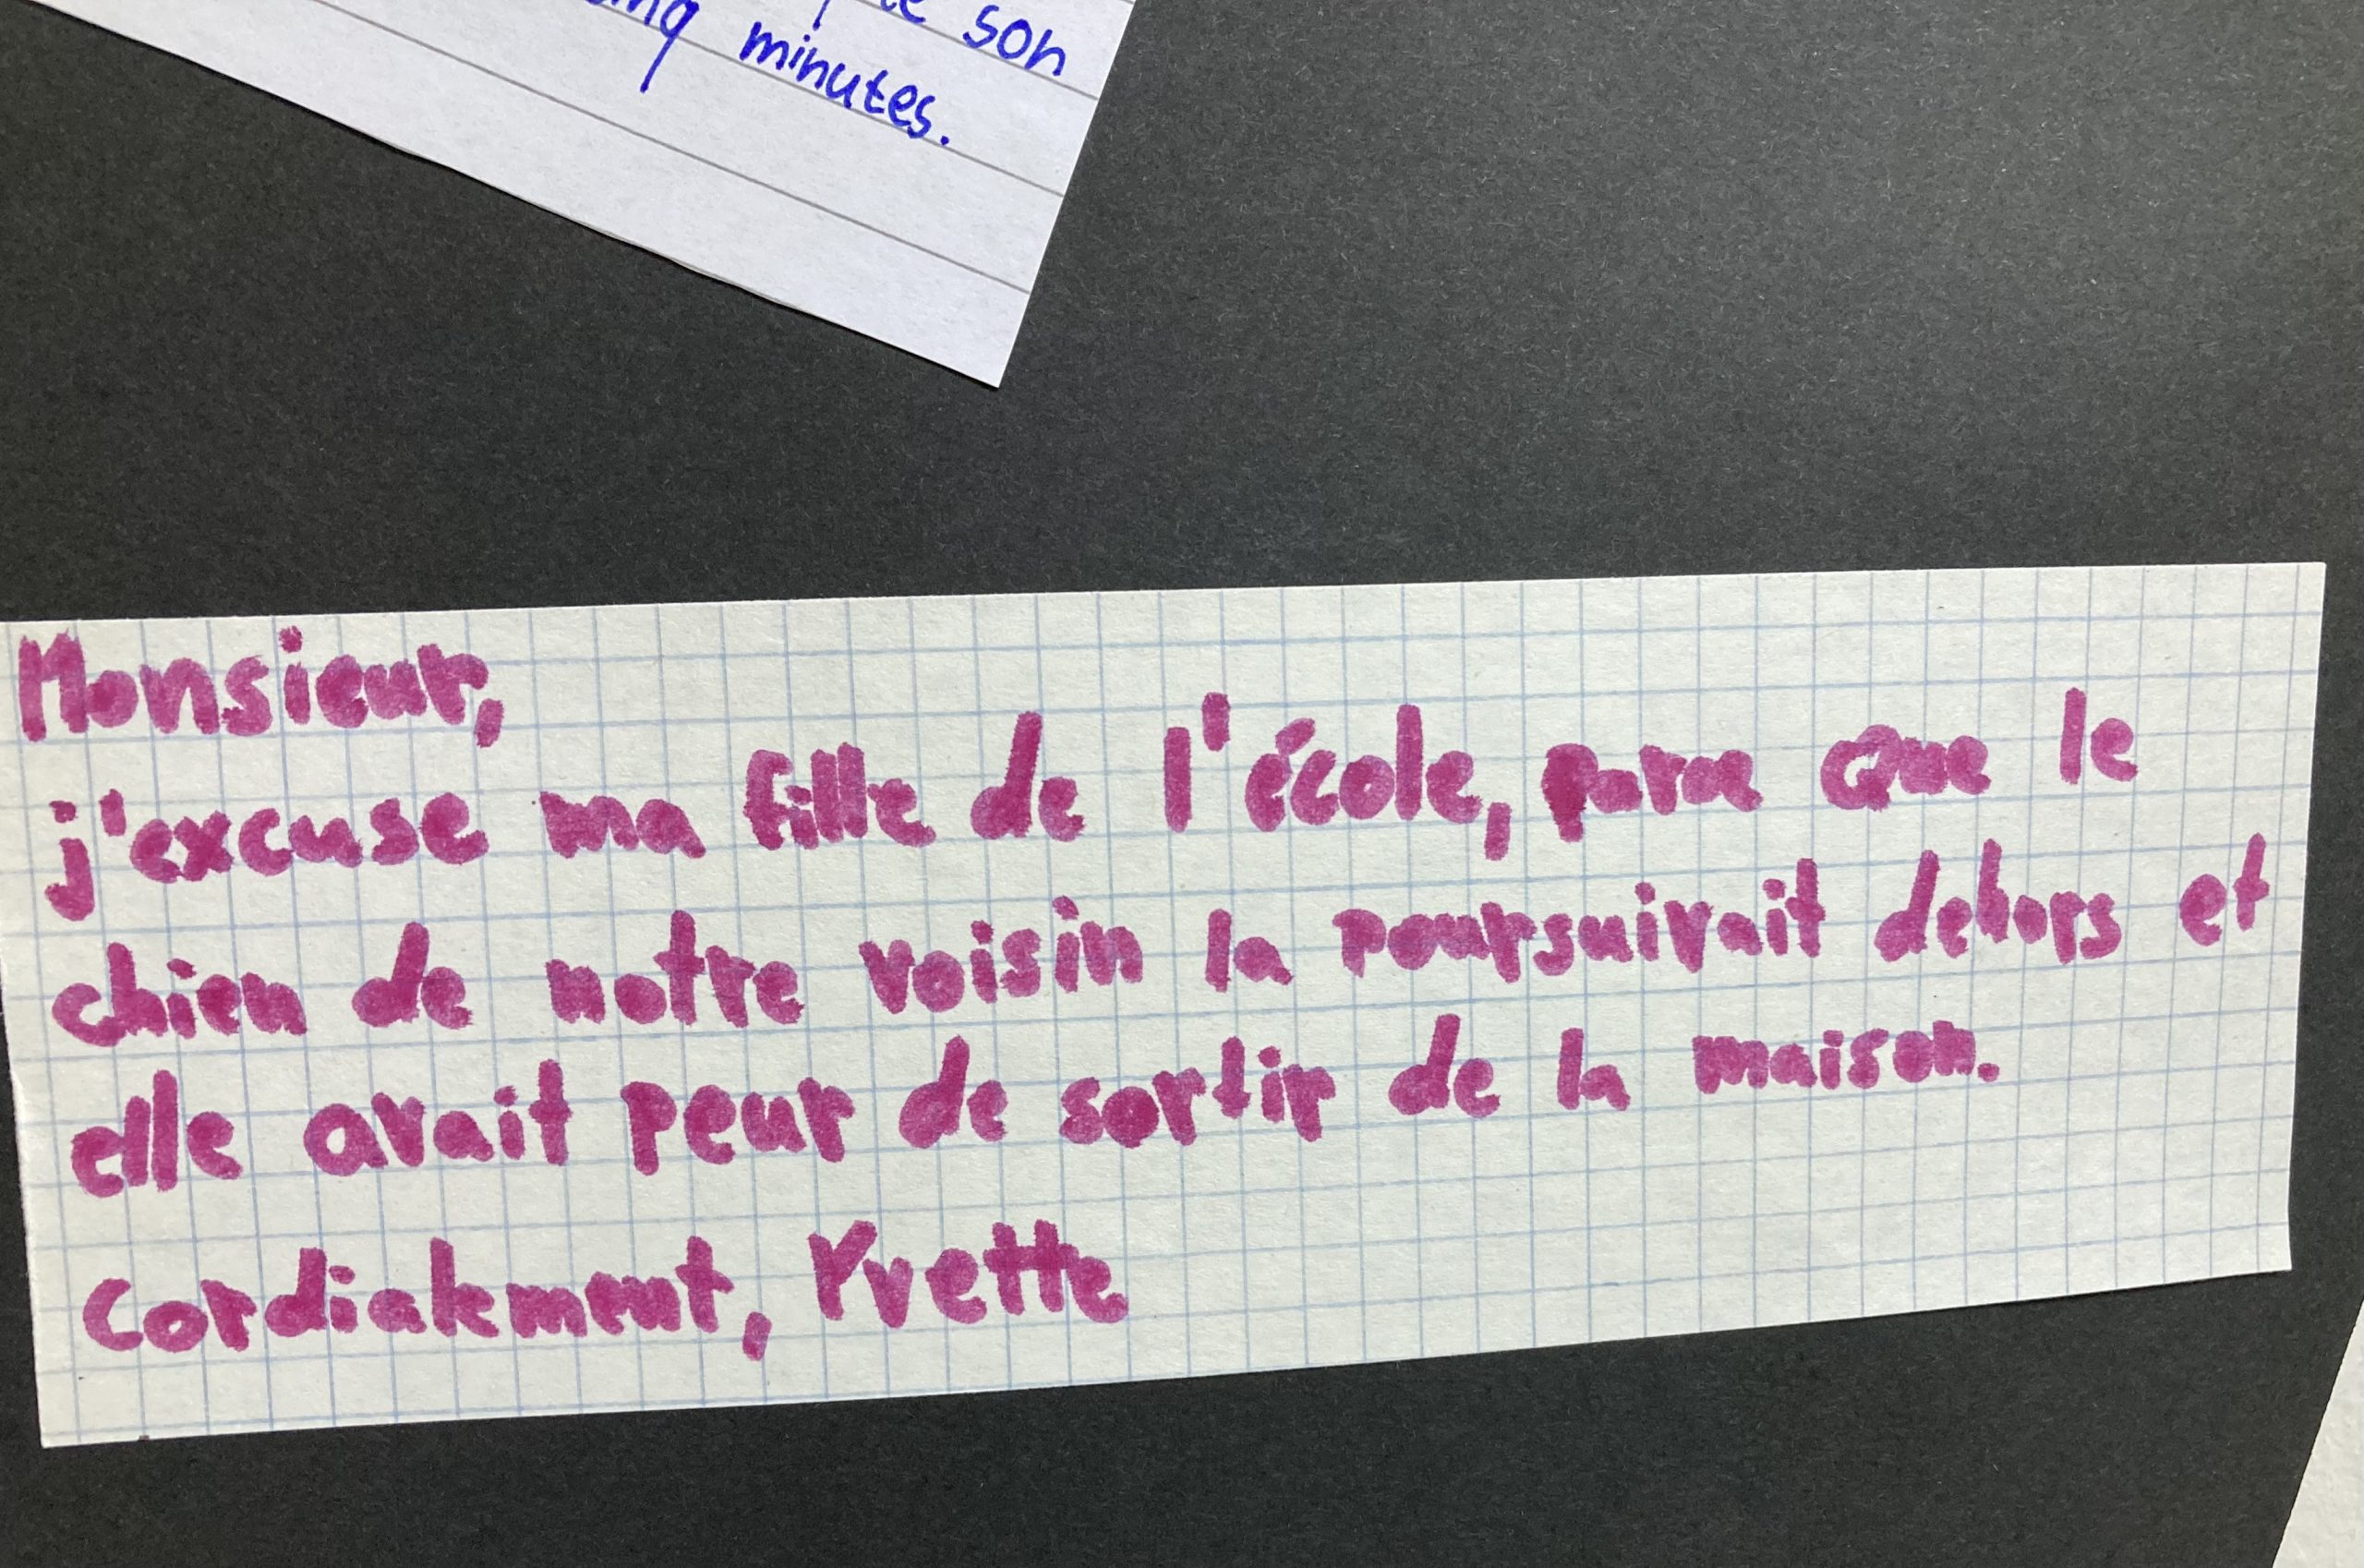 son
minutes.
Monsieur,
j'excuse ma fille de l'école, parce que le
chien de notre voisin la poursuivait dehors et
elle avait peur de sortir de la maison.
Cordialement, Yvette